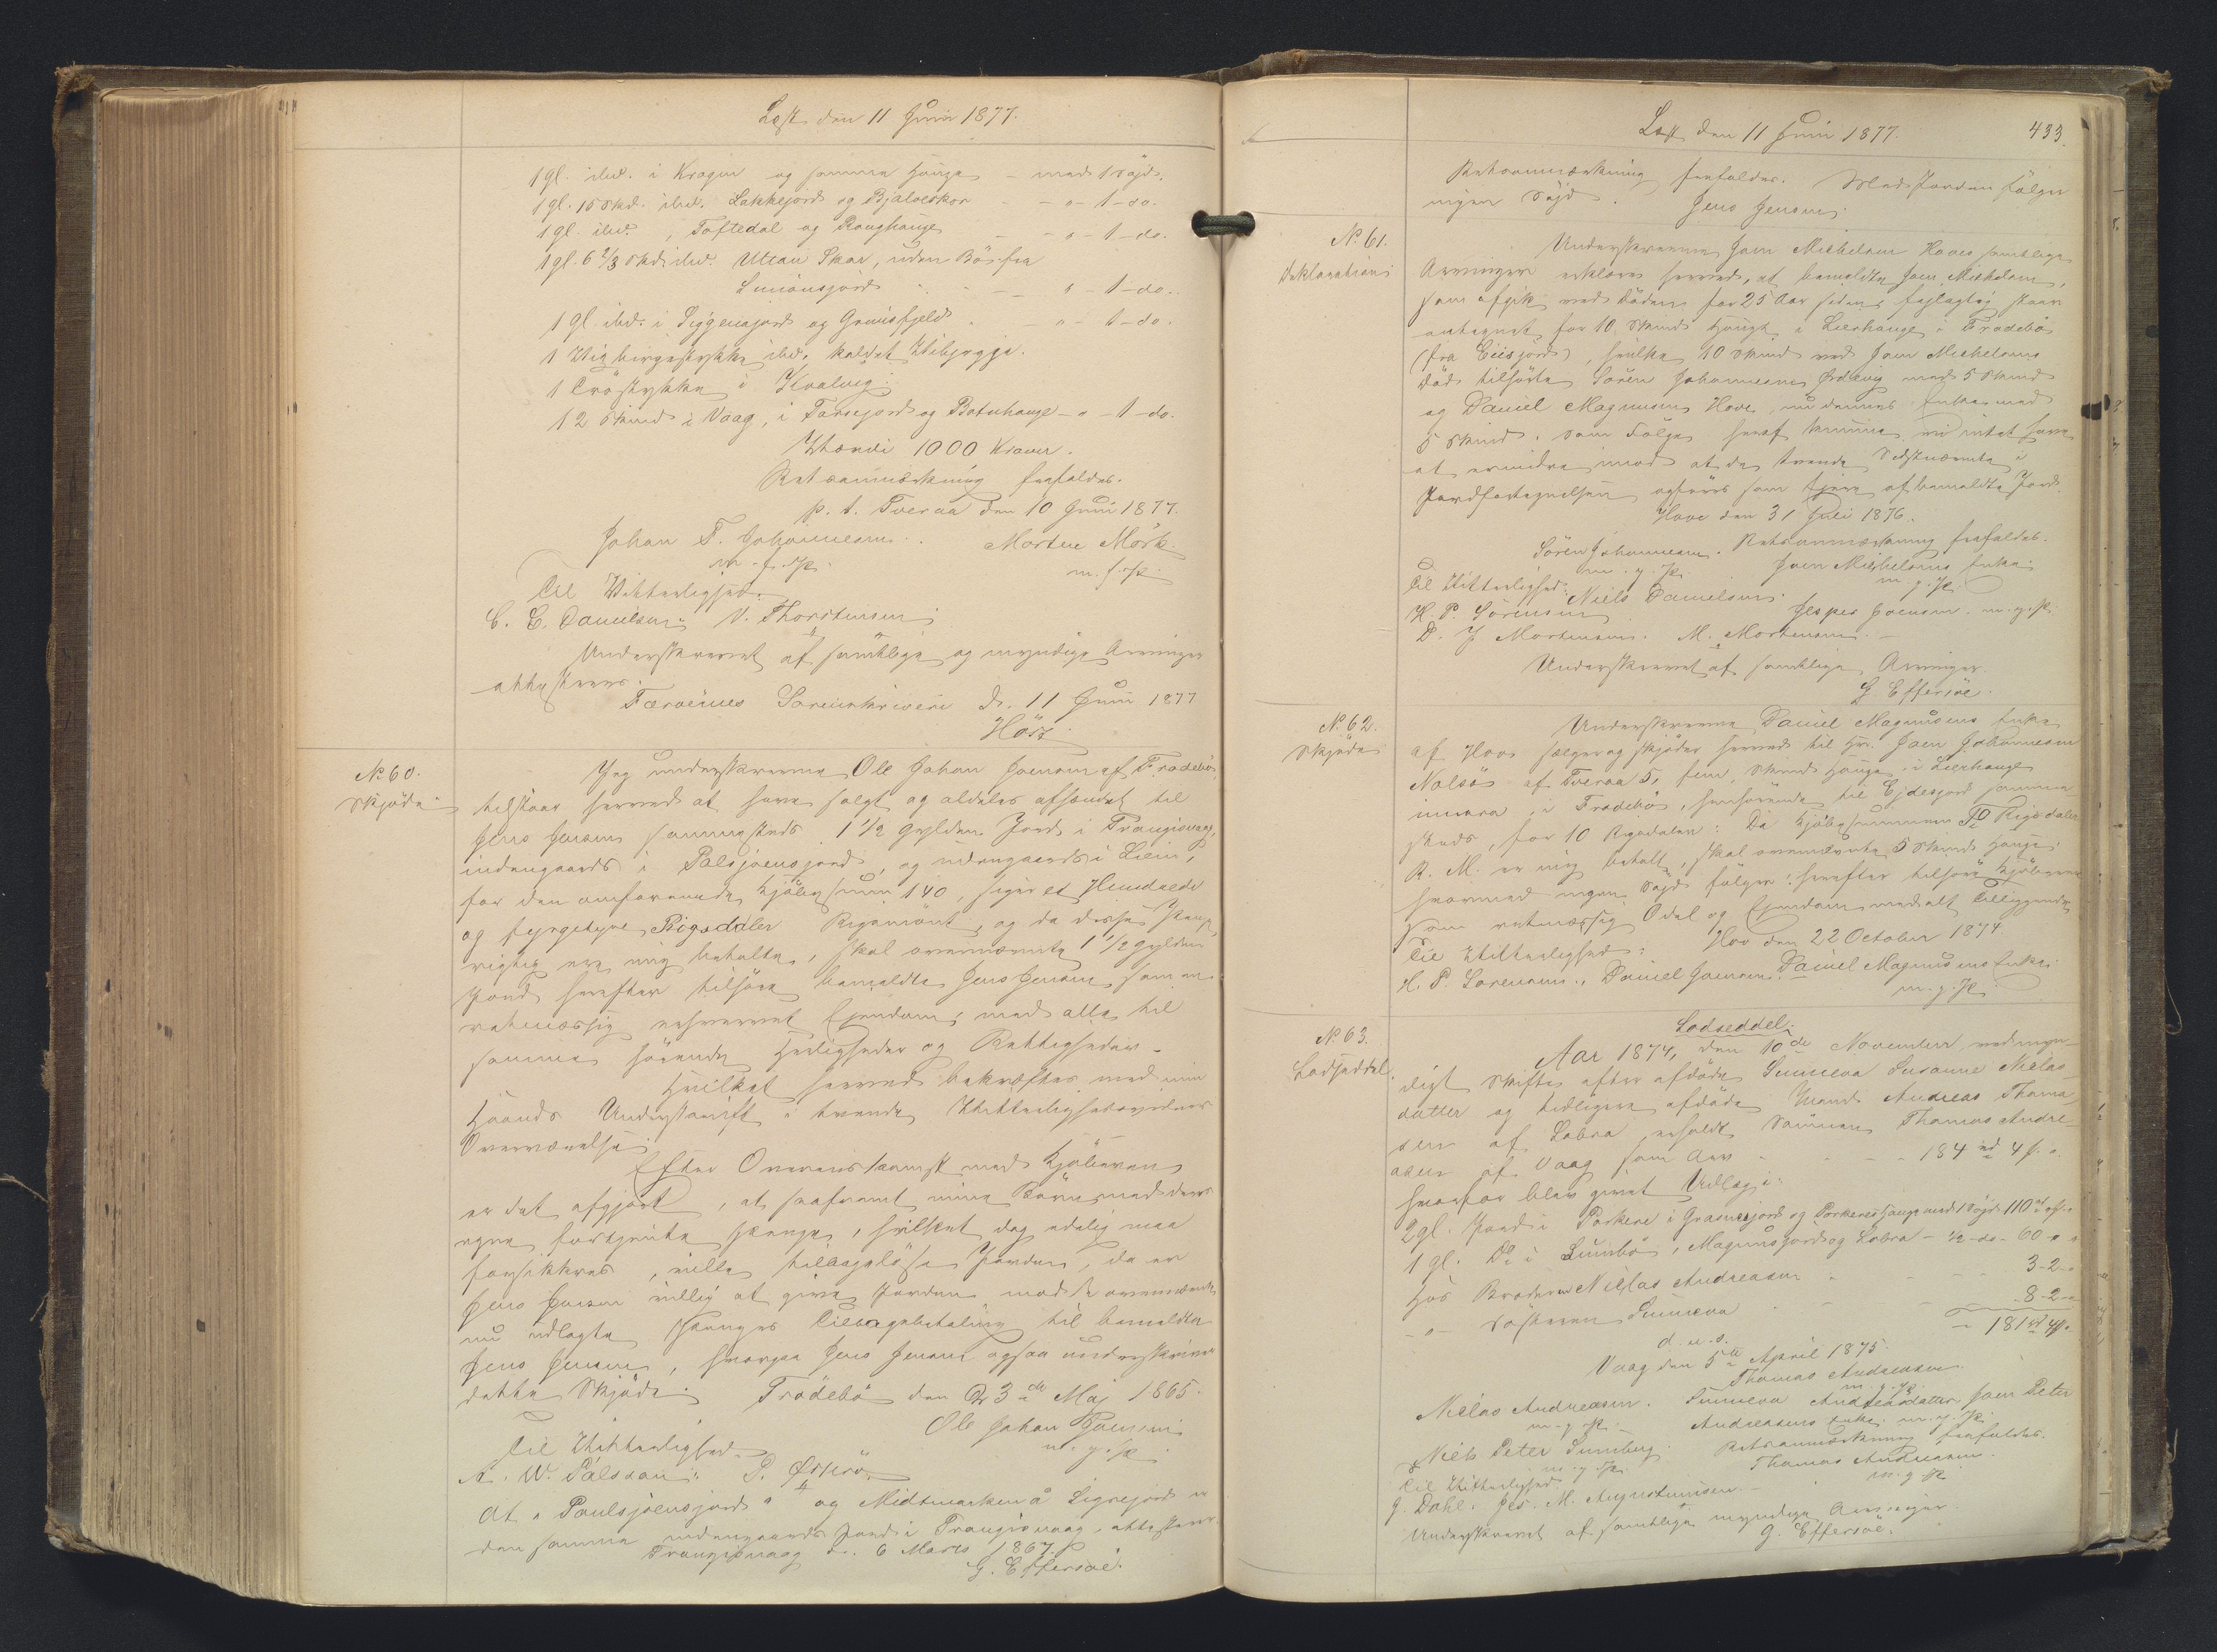 Læst den 11 Juni 1877.
1 gl. ibd. i Krogen og samme Hauge - med 1 Røjd.
1 gl. 15 Skd. ibd. Lakkejord og Bjalveskor - " - 1 - do.
1 gl. ibd., Toftedal og Raughauge - " - 1 - do.
1 gl. 6 2/3 Skd. ibd. Uttan Skor, uden Bös fra
Simonsjord - " - 1 - do.
1 gl. ibd. i Siggenajord og Grimsfjeld - " - 1 - do.
1 ibd. kaldet
1 Tröstykke i Hvalvig.
12 Skind i Vaag, i Tarsejord og Botnhauge - " - 1 - do.
Værdi 1000 Kroner.
Retsanmærkning frafaldes.
p. t. Tveraa den 10 Juni 1877.
Johan F. Johannesen. Morten Mörk
m. f. P. m. f. P.
Til Vitterlighed.
C. E. Danielsen. V. Thorsteinsen
Underskrevet af samtlige og myndige Arvinger
attesteres.
Færøernes Sorenskriveri d. 11 Juni 1877
Höst
No 60.
Skjøde
Jeg underskrevne Ole Johan Joensen af Frodebö
tilstaar herved at have solgt og aldeles afhændet til
Jens Jensen sammesteds 1 1/2 Gylden Jord i Trangisvaag,
indengaards i Palsjoensjord, og udengaards i Liein,
for den omforenede Kjöbesum 140, siger et Hundrede
og fyrgetyve Rigsdaler Rigsmönt, og da disse Penge
rigtig ere mig betalte, skal ovennævnte 1 1/2 Gylden
Jord herefter tilhöre bemeldte Jens Jensen som en
retmæssig erhvervet Ejendom, med alle til
samme hörende Herligheder og Rettigheder.
Hvilket herved bekræftes med min
Haands Underskrift i tvende Vitterlighedsvidners
Overværelse.
Efter Overenskomst med Kjöberen
er det afgjort, at saafremt mine Börn med deres
egne fortjente Penge, hvilket dog edelig maa
forsikkres, ville tilbagelöse Jorden, da er
Jens Jensen villig at give Jorden mod de ovennævnte
nu udlagte Penges Tilbagebetaling til bemeldte
Jens Jensen, hvorpaa Jens Jensen ogsaa underskriver
dette Skjöde. Frödebö den 23de Maj 1865.
Ole Johan Joensen
m. f. P.
Til Vitterlighed.
N. W. Pálsson. P. Østerö.
At "Paulsjoensjord" og Midtmarken á Signejord er
den samme indengaards Jord i Trangisvaag, attesteres.
Trangisvaag d. 6 Marts 1867.
G. Effersöe.
Læst den 11 Juni 1877. 433.
Retsanmærkning frafaldes. Med Jorden fölger
ingen Röjd. Jens Jensen
No. 61.
Deklaration
Underskrevne Joen Michelsen Hoves samtlige
Arvinger erklære herved, at bemeldte Joen Michelsen,
som afgik ved Döden for 25 Aar siden, fejlagtig staar
antegnet for 10 Skind Hauge i Lierhauge i Frodebö
(fra Eiisjord), hvilke 10 Skind ved Joen Michelsens
Död tilhörte Sören Johannesen Ördevig med 5 Skind
og Daniel Magnusen Hove, nu dennes Enke med
5 Skind. Som Fölge heraf kunne vi intet have
at erindre imod at de tvende Sidstnævnte i
Jordfortegnelsen opföres som Ejere af bemeldte Jord.
Hove den 31 Juli 1876.
Sören Johannesen. Retsanmærkning frafaldes.
m. f. P. Joen Michelsens Enke
Til Vitterlighed: Niels Danielsen. m. f. P.
H. P. Sörensen Jesper Joensen m. f. P.
D. J. Mortensen. M. Mortensen.
Underskrevet af samtlige Arvinger.
G. Effersöe.
No 62.
Skjöde
Underskrevne Daniel Magnusens Enke
af Hove sælger og skjöder herved til Hr. Joen Johannesen
Nolsö af Tveraa 5, fem, Skind Hauge i Lierhauge
innara i Frodebö, henhörende til Ejdesjord samme-
steds, for 10 Rigsdaler: Da Kjöbesummen 10 Rigsdaler
R. M. er mig betalt, skal ovennævnte 5 Skind Hauge,
hvormed ingen Röjd fölger, herefter tilhöre Kjöberen
som retmæssig Odel og Ejendom med alt Tilliggende
Til Vitterlighed: Hov den 22 October 1874.
H. P. Sörensen. Daniel Joensen. Daniel Magnusens Enke
m. f. P.
No 63.
Lodseddel.
Lodseddel.
Aar 1874, den 10de November ved myn-
digt Skifte efter afdöde Sunneva Susanne Niclas-
datter og tidligere afdöde Mand Andreas Thoma-
sen af Lobra, erholdt Sönnen Thomas Andre-
asen af Vaag som Arv - 184 rd 4 β.
hvorfor blev givet Udlæg:
2 gl. Jord i Porkere i Grasmesjord og Porkereshauge med 1 Röjd - 110 rd
1 gl. Do i Sumbö, Magnusjord og Lobra - 1/2 - do - 60 " "
Hos Broderen Niclas Andreasen - 3 - 2 -
- " - Sösteren Sunneva - 8 - 2 -
d. u. s. - 181 rd 4 β.
Vaag den 5te April 1875.
Thomas Andreasen
m. f. P.
Niclas Andreasen. Sunneva Andreasdatter, Joen Peter
m. f. P. Andreasens Enke. m. f. P.
Niels Peter Sumberg. Retsanmærkning frafaldes.
m. f. P. Thomas Andreasen
Til Vitterlighed m. f. P.
J. Dahl. Jes. M. Augustinusen.
Underskrevet af samtlige myndige Arvinger.
G. Effersöe.